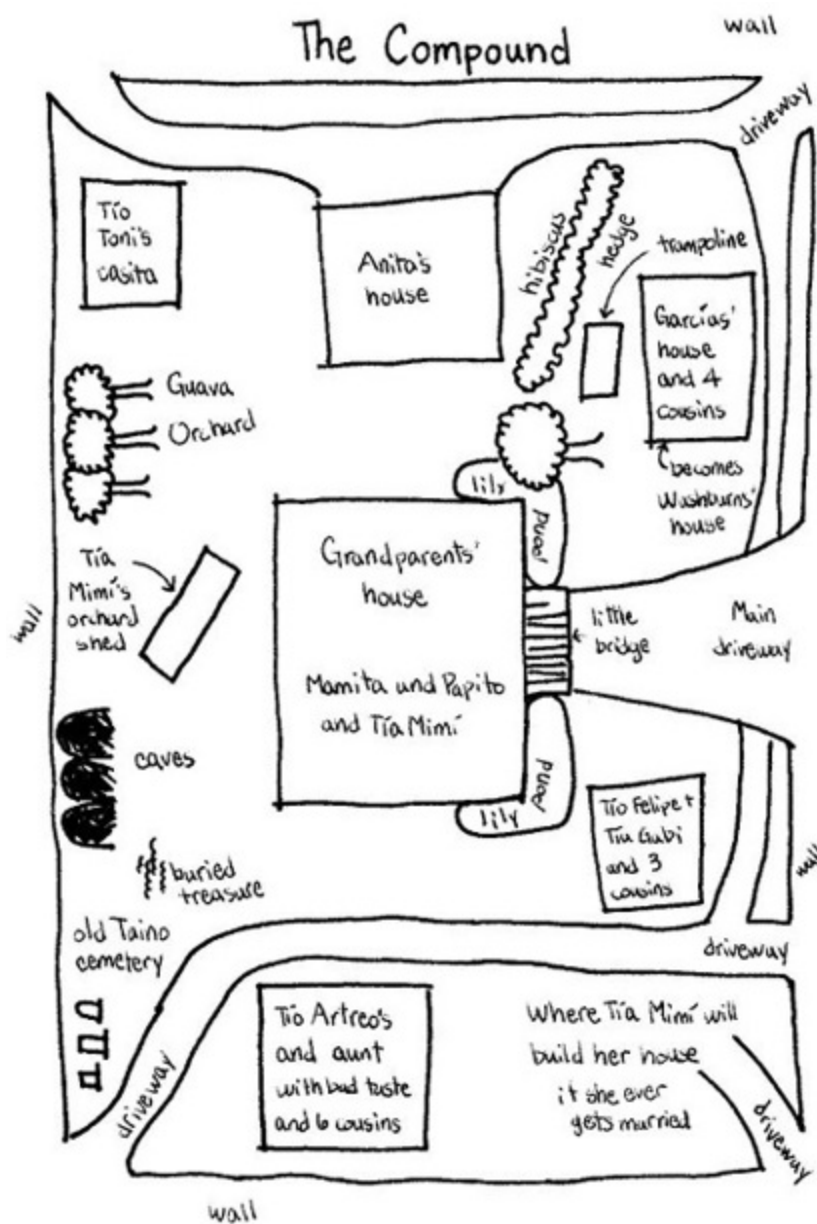 The Compound
wall
driveway
Tío
Toni's
casita
Anita's
house
hibiscus
hedge
trampoline
Garcías'
house
and 4
cousins
becomes
Washburns'
house
Guava
Orchard
lily
pond
Tía
Mimí's
orchard
shed
wall
Grandparents'
house
Mamita and Papito
and Tía Mimí
little
bridge
Main
driveway
caves
lily
pond
Tío Felipe +
Tía Gubi
and 3
cousins
wall
buried
treasure
old Taino
cemetery
driveway
driveway
Tío Artreo's
and aunt
with bad taste
and 6 cousins
Where Tía Mimí will
build her house
if she ever
gets married
driveway
wall